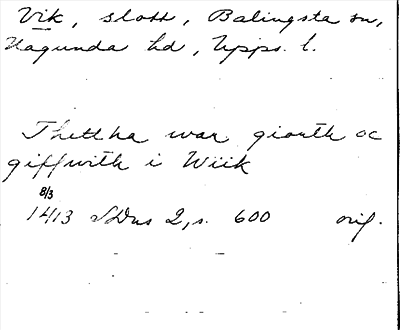 Vik, slott, Balingsta sn,
Hagunda hd, Upps. l.
Thettha war giorth oc
giffwith i Wiik
8/3
1413 SDns 2, s. 600 orig.